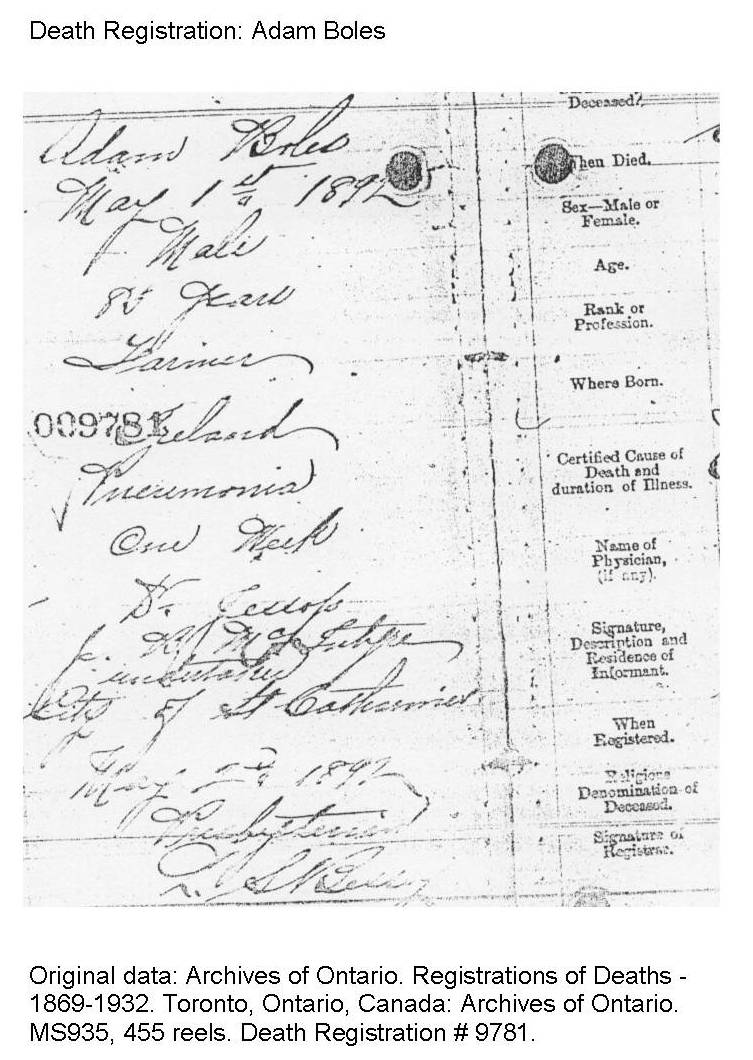 Death Registration: Adam Boles
Deceased?
Adam Boles
When Died.
May 1st 1892
Sex—Male or
Female.
Male
Age.
Years
Rank or
Profession.
Farmer
Where Born.
009781 Ireland
Certified Cause of
Death and
duration of Illness.
Pneumonia
One Week
Name of
Physician,
(if any).
Dr.
Signature,
Description and
Residence of
Informant.
undertaker
City of St Catharines
When
Registered.
May 2nd 1892
Religious
Denomination of
Deceased.
Presbyterian
Signature of
Registrar.
Original data: Archives of Ontario. Registrations of Deaths -
1869-1932. Toronto, Ontario, Canada: Archives of Ontario.
MS935, 455 reels. Death Registration # 9781.